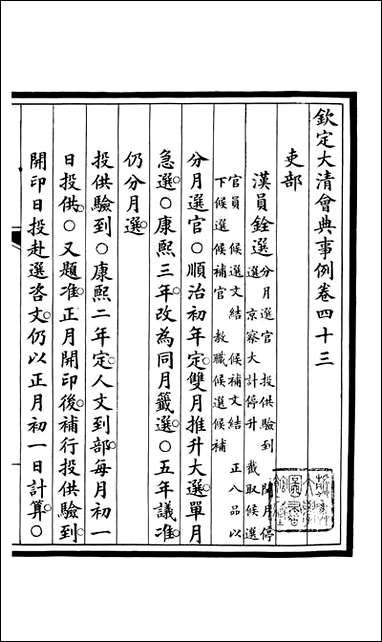 欽定大清會典事例卷四十三
吏部
漢員銓選 分月選官 投供驗到 閏月停
選 京察大計停升 截取候選
官員 候選文結 候補文結 正八品以
下候選候補官 教職候選候補
分月選官○順治初年定雙月推升大選單月
急選○康熙三年改為同月籤選○五年議准
仍分月選
投供驗到○康熙二年定人文到部每月初一
日投供○又題准正月開印後補行投供驗到
開印日投赴選咨文仍以正月初一日計算○